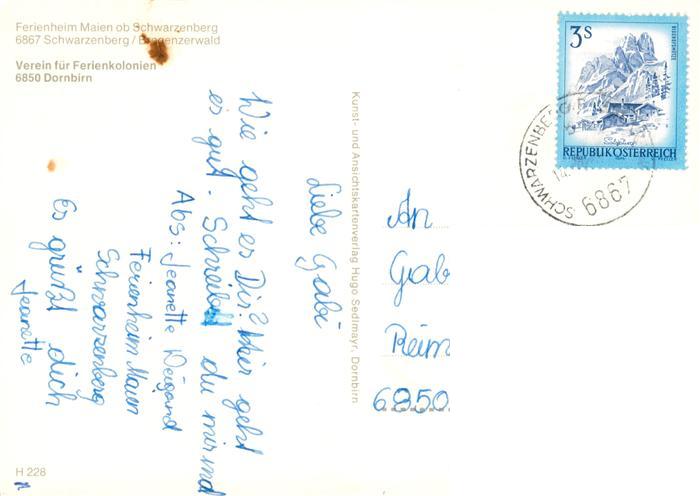 Ferienheim Maien ob Schwarzenberg
6867 Schwarzenberg / Bregenzerwald
Verein für Ferienkolonien
6850 Dornbirn
Liebe Gabi
Wie geht es Dir? Mir geht
es gut. Schreibst du mir mal
Abs: Jeanette Weigand
Ferienheim Maien
Schwarzenberg
Es grüßt dich
Jeanette
Kunst- und Ansichtskartenverlag Hugo Sedlmayr, Dornbirn
3S
Salzburg
REPUBLIK ÖSTERREICH
SCHWARZENBERG
6867
An
Gab
Reim
6850
H 228